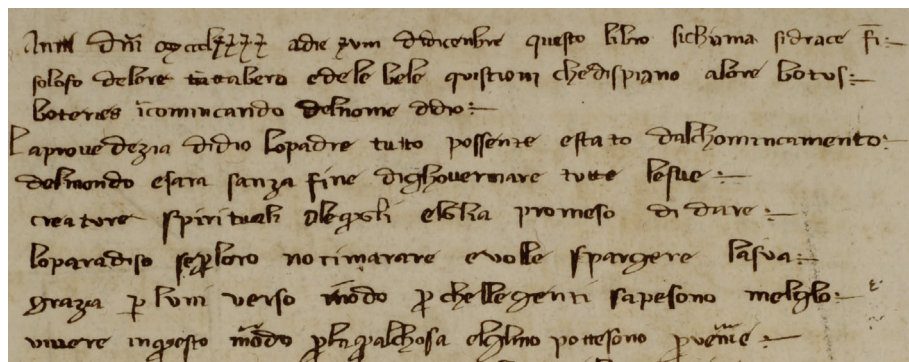 Anni dñi mccclxxxx adie xviii didicenbre questo libro sichiama sidrace fi:-
solofo delore tuttabero edele bele quistioni chedispiano alore botus:-
boteres icomincando delnome ddio:-
Laprovedezia didio lopadre tutto possente estato dalchominciamento:-
delmondo esara sanza fine dighovernare tutte lesue:-
creature spirituali alequali elglia promeso di dare:-
loparadiso seploro no rimarare evolle spargere lasua:-
grazia p luni verso mōdo p chellegenti sapesono melglo:-
vivere inquesto mōdo plaqualchosa elglino pottesono pvenire:-